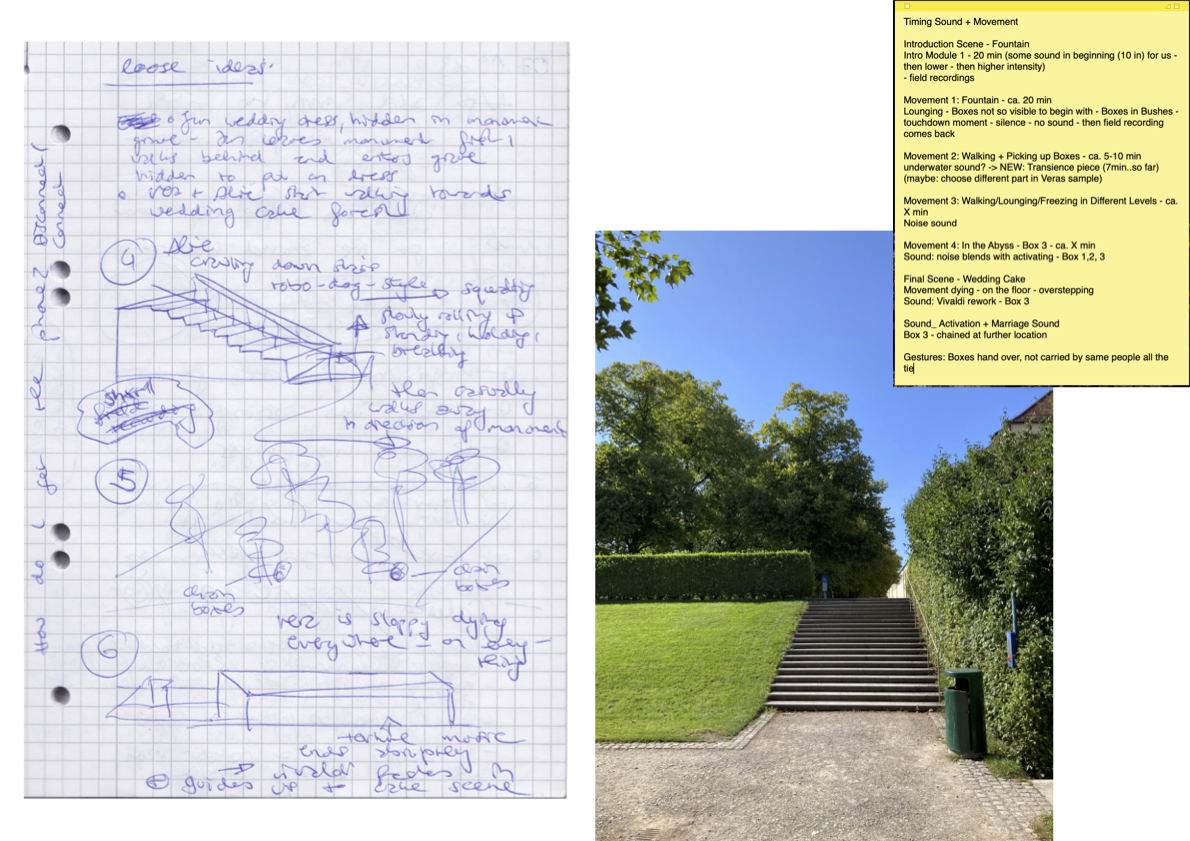 loose ideas:
o Jan wedding dress, hidden in monument
grove - Jan leaves monument first,
walks behind and enters grove
hidden to put on dress
o Vera + Alie start walking towards
wedding cake forest
4
Alie
crawling down stairs
robo-dog-style squeaky
slowly rolling up
standing, holding,
breathing
then casually
walks away
in direction of monument
5
chain
boxes
chain
boxes
Vera is sloppy dying
everywhere - on every-
thing
6
music
ends abruptly
Vivaldi fades in
guides us to cake scene
How do I get the phone? Disconnect /
connect
Timing Sound + Movement
Introduction Scene - Fountain
Intro Module 1 - 20 min (some sound in beginning (10 in) for us -
then lower - then higher intensity)
- field recordings
Movement 1: Fountain - ca. 20 min
Lounging - Boxes not so visible to begin with - Boxes in Bushes -
touchdown moment - silence - no sound - then field recording
comes back
Movement 2: Walking + Picking up Boxes - ca. 5-10 min
underwater sound? -> NEW: Transience piece (7min..so far)
(maybe: choose different part in Veras sample)
Movement 3: Walking/Lounging/Freezing in Different Levels - ca.
X min
Noise sound
Movement 4: In the Abyss - Box 3 - ca. X min
Sound: noise blends with activating - Box 1,2, 3
Final Scene - Wedding Cake
Movement dying - on the floor - overstepping
Sound: Vivaldi rework - Box 3
Sound_ Activation + Marriage Sound
Box 3 - chained at further location
Gestures: Boxes hand over, not carried by same people all the
tie